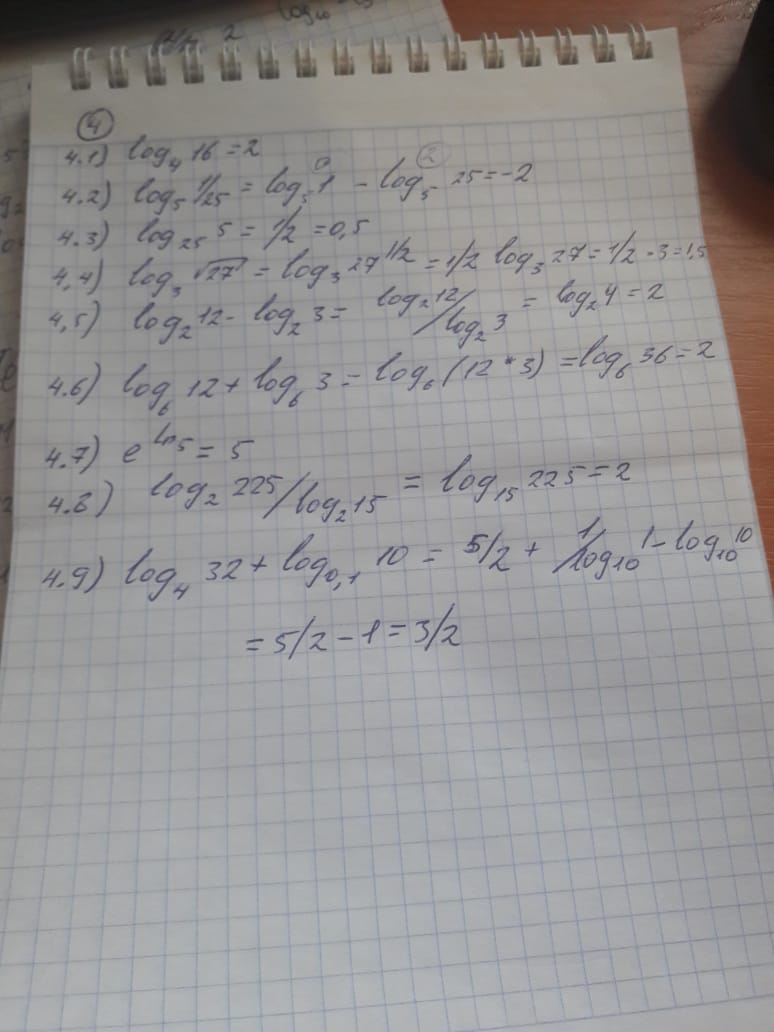 log₁₀
2
④
4.1) log₄ 16 = 2
4.2) log₅ 1/25 = log₅ 1 - log₅ 25 = -2
0 2
4.3) log₂₅ 5 = 1/2 = 0,5
4,4) log₃ √27 = log₃ 27^1/2 = 1/2 log₃ 27 = 1/2 · 3 = 1,5
4,5) log₂ 12 - log₂ 3 = log₂ 12 / log₂ 3 = log₂ 4 = 2
4.6) log₆ 12 + log₆ 3 = log₆ (12 * 3) = log₆ 36 = 2
4.7) e^ln5 = 5
4.8) log₂ 225 / log₂ 15 = log₁₅ 225 = 2
4.9) log₄ 32 + log₀,₁ 10 = 5/2 + 1/log₁₀ 1 - log₁₀ 10
= 5/2 - 1 = 3/2